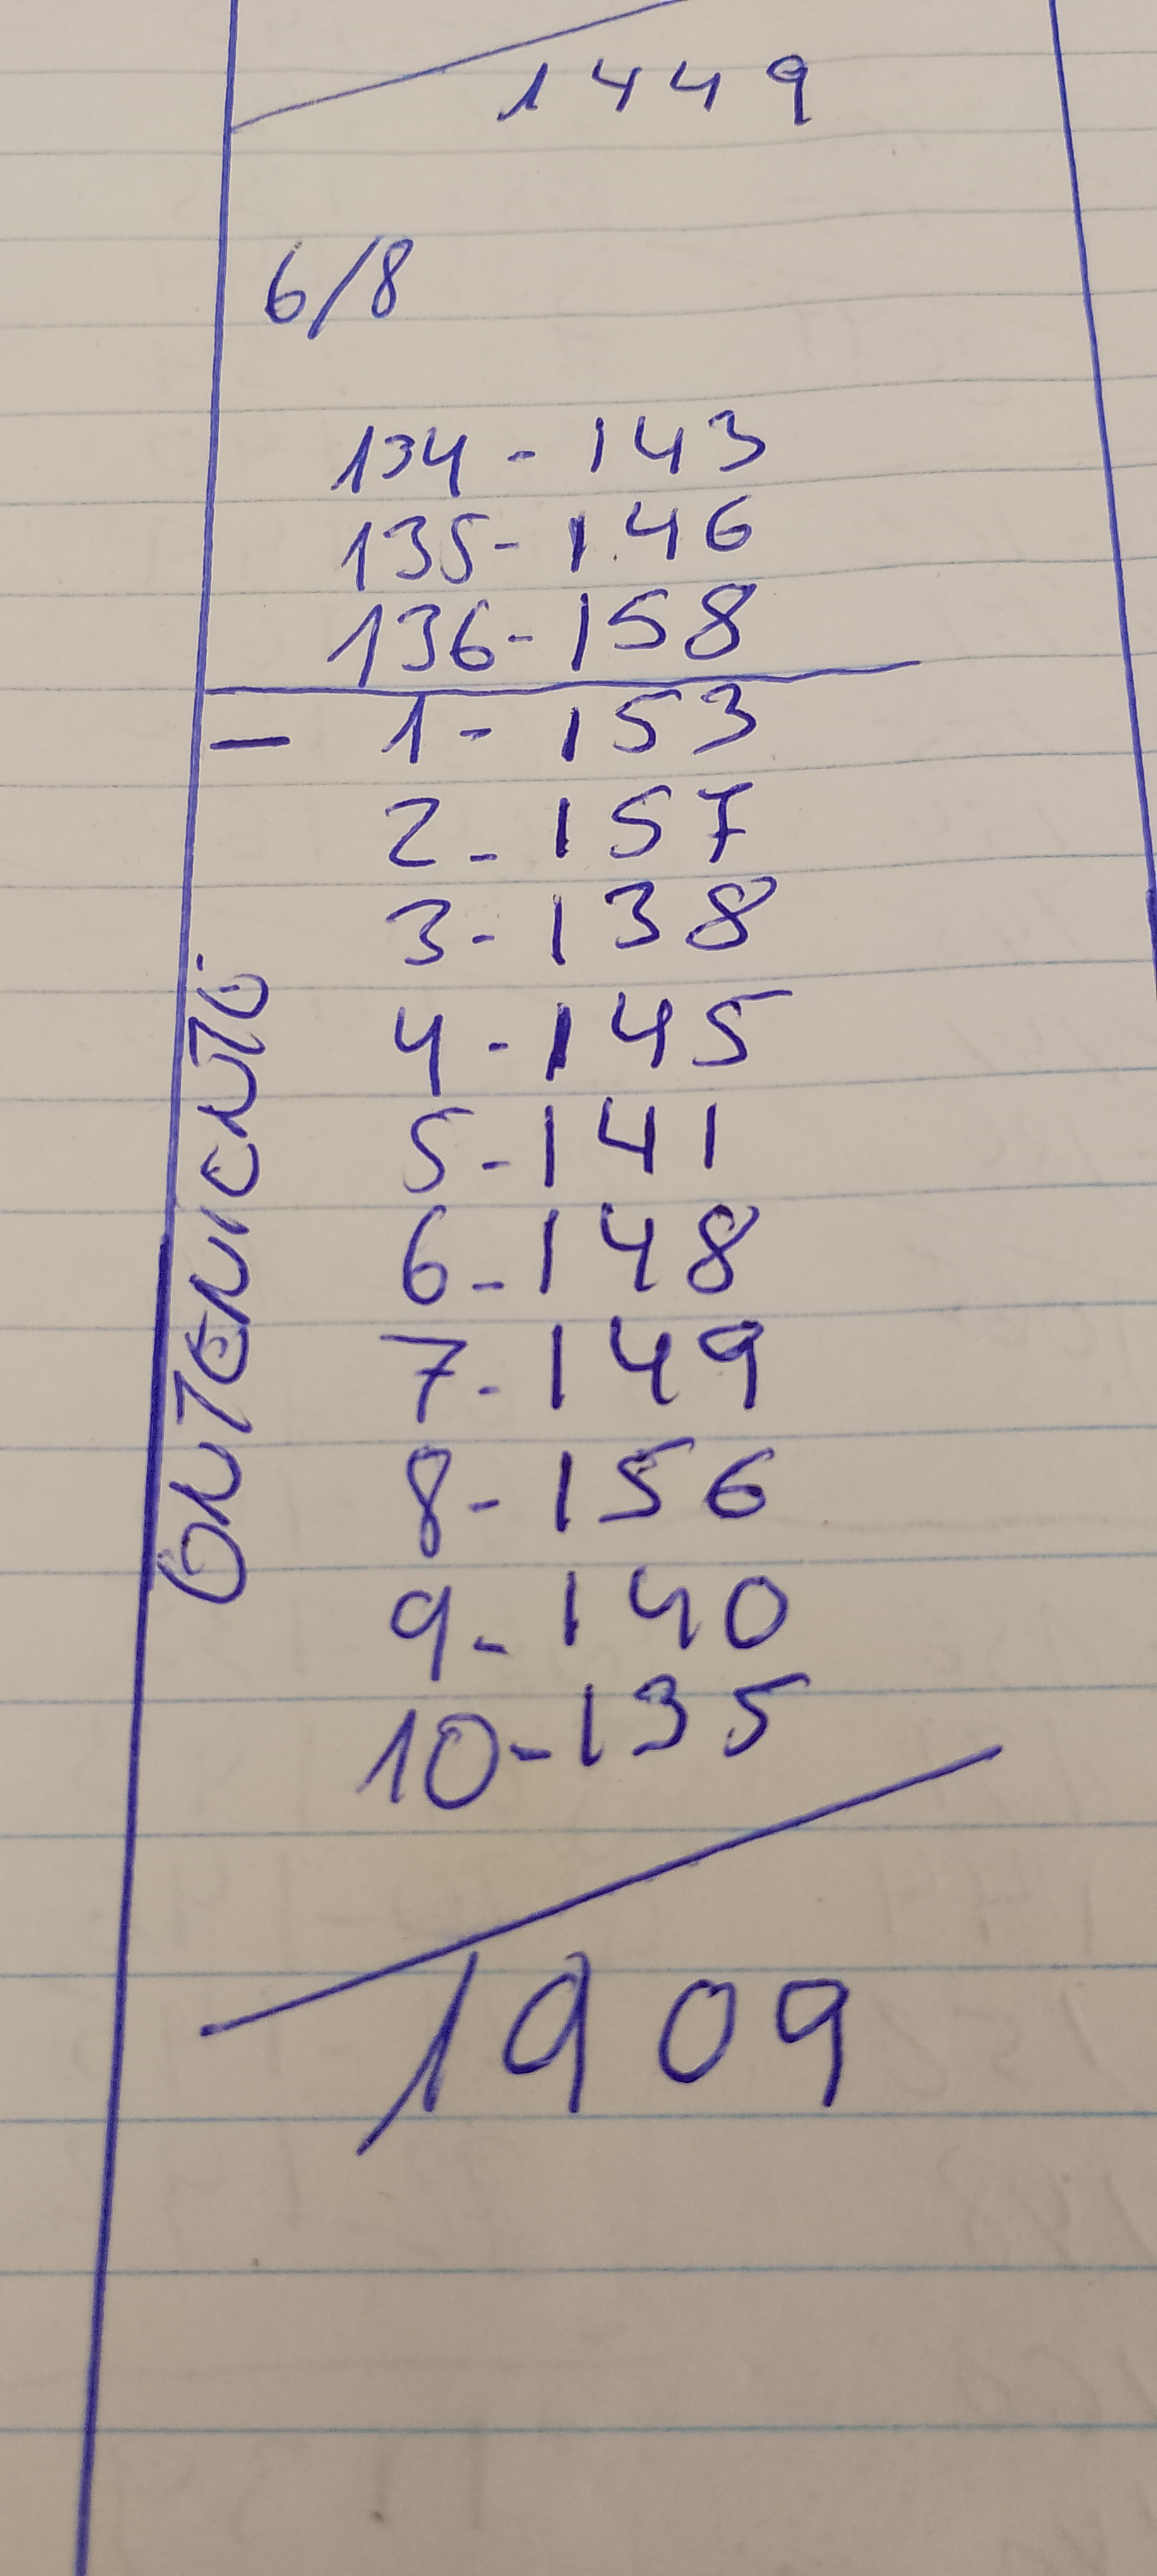 1449
6/8
134 - 143
135 - 146
136 - 158
- 1 - 153
2 - 157
3 - 138
4 - 145
5 - 141
6 - 148
7 - 149
8 - 156
9 - 140
10 - 135
ONTENIENTE
1909